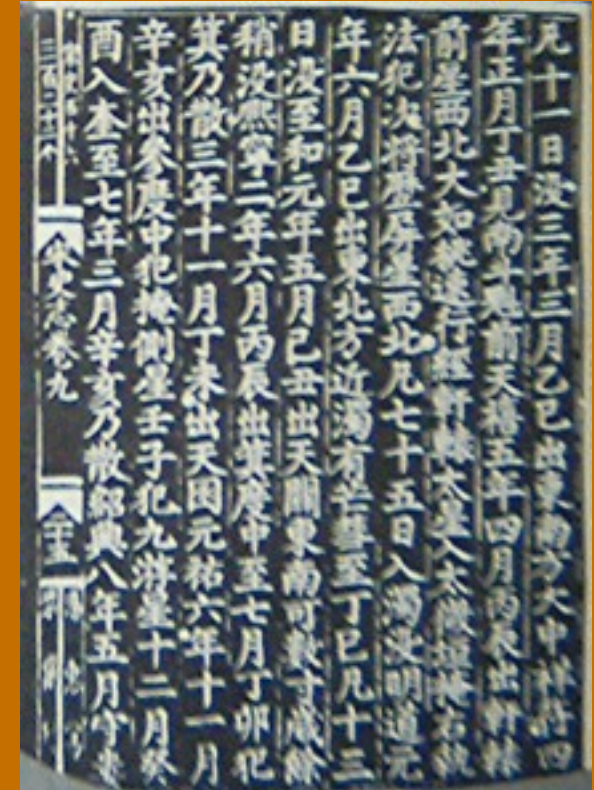 凡十一日没三年三月乙巳出東南方大中祥符四
年正月丁丑見南斗魁前天禧五年四月丙辰出軒轅
前星西北大如桃速行經軒轅大星入太微垣掩右執
法犯次將歷屏星西北凡七十五日入濁没明道元
年六月乙巳出東北方近濁有芒彗至丁巳凡十三
日没至和元年五月己丑出天關東南可數寸歲餘
稍没熙寧二年六月丙辰出箕度中至七月丁卯犯
箕乃散三年十一月丁未出天囷元祐六年十一月
辛亥出參度中犯掩側星壬子犯九游星十二月癸
酉入奎至七年三月辛亥乃散紹興八年五月守婁
三百二十三个
宋史志卷九